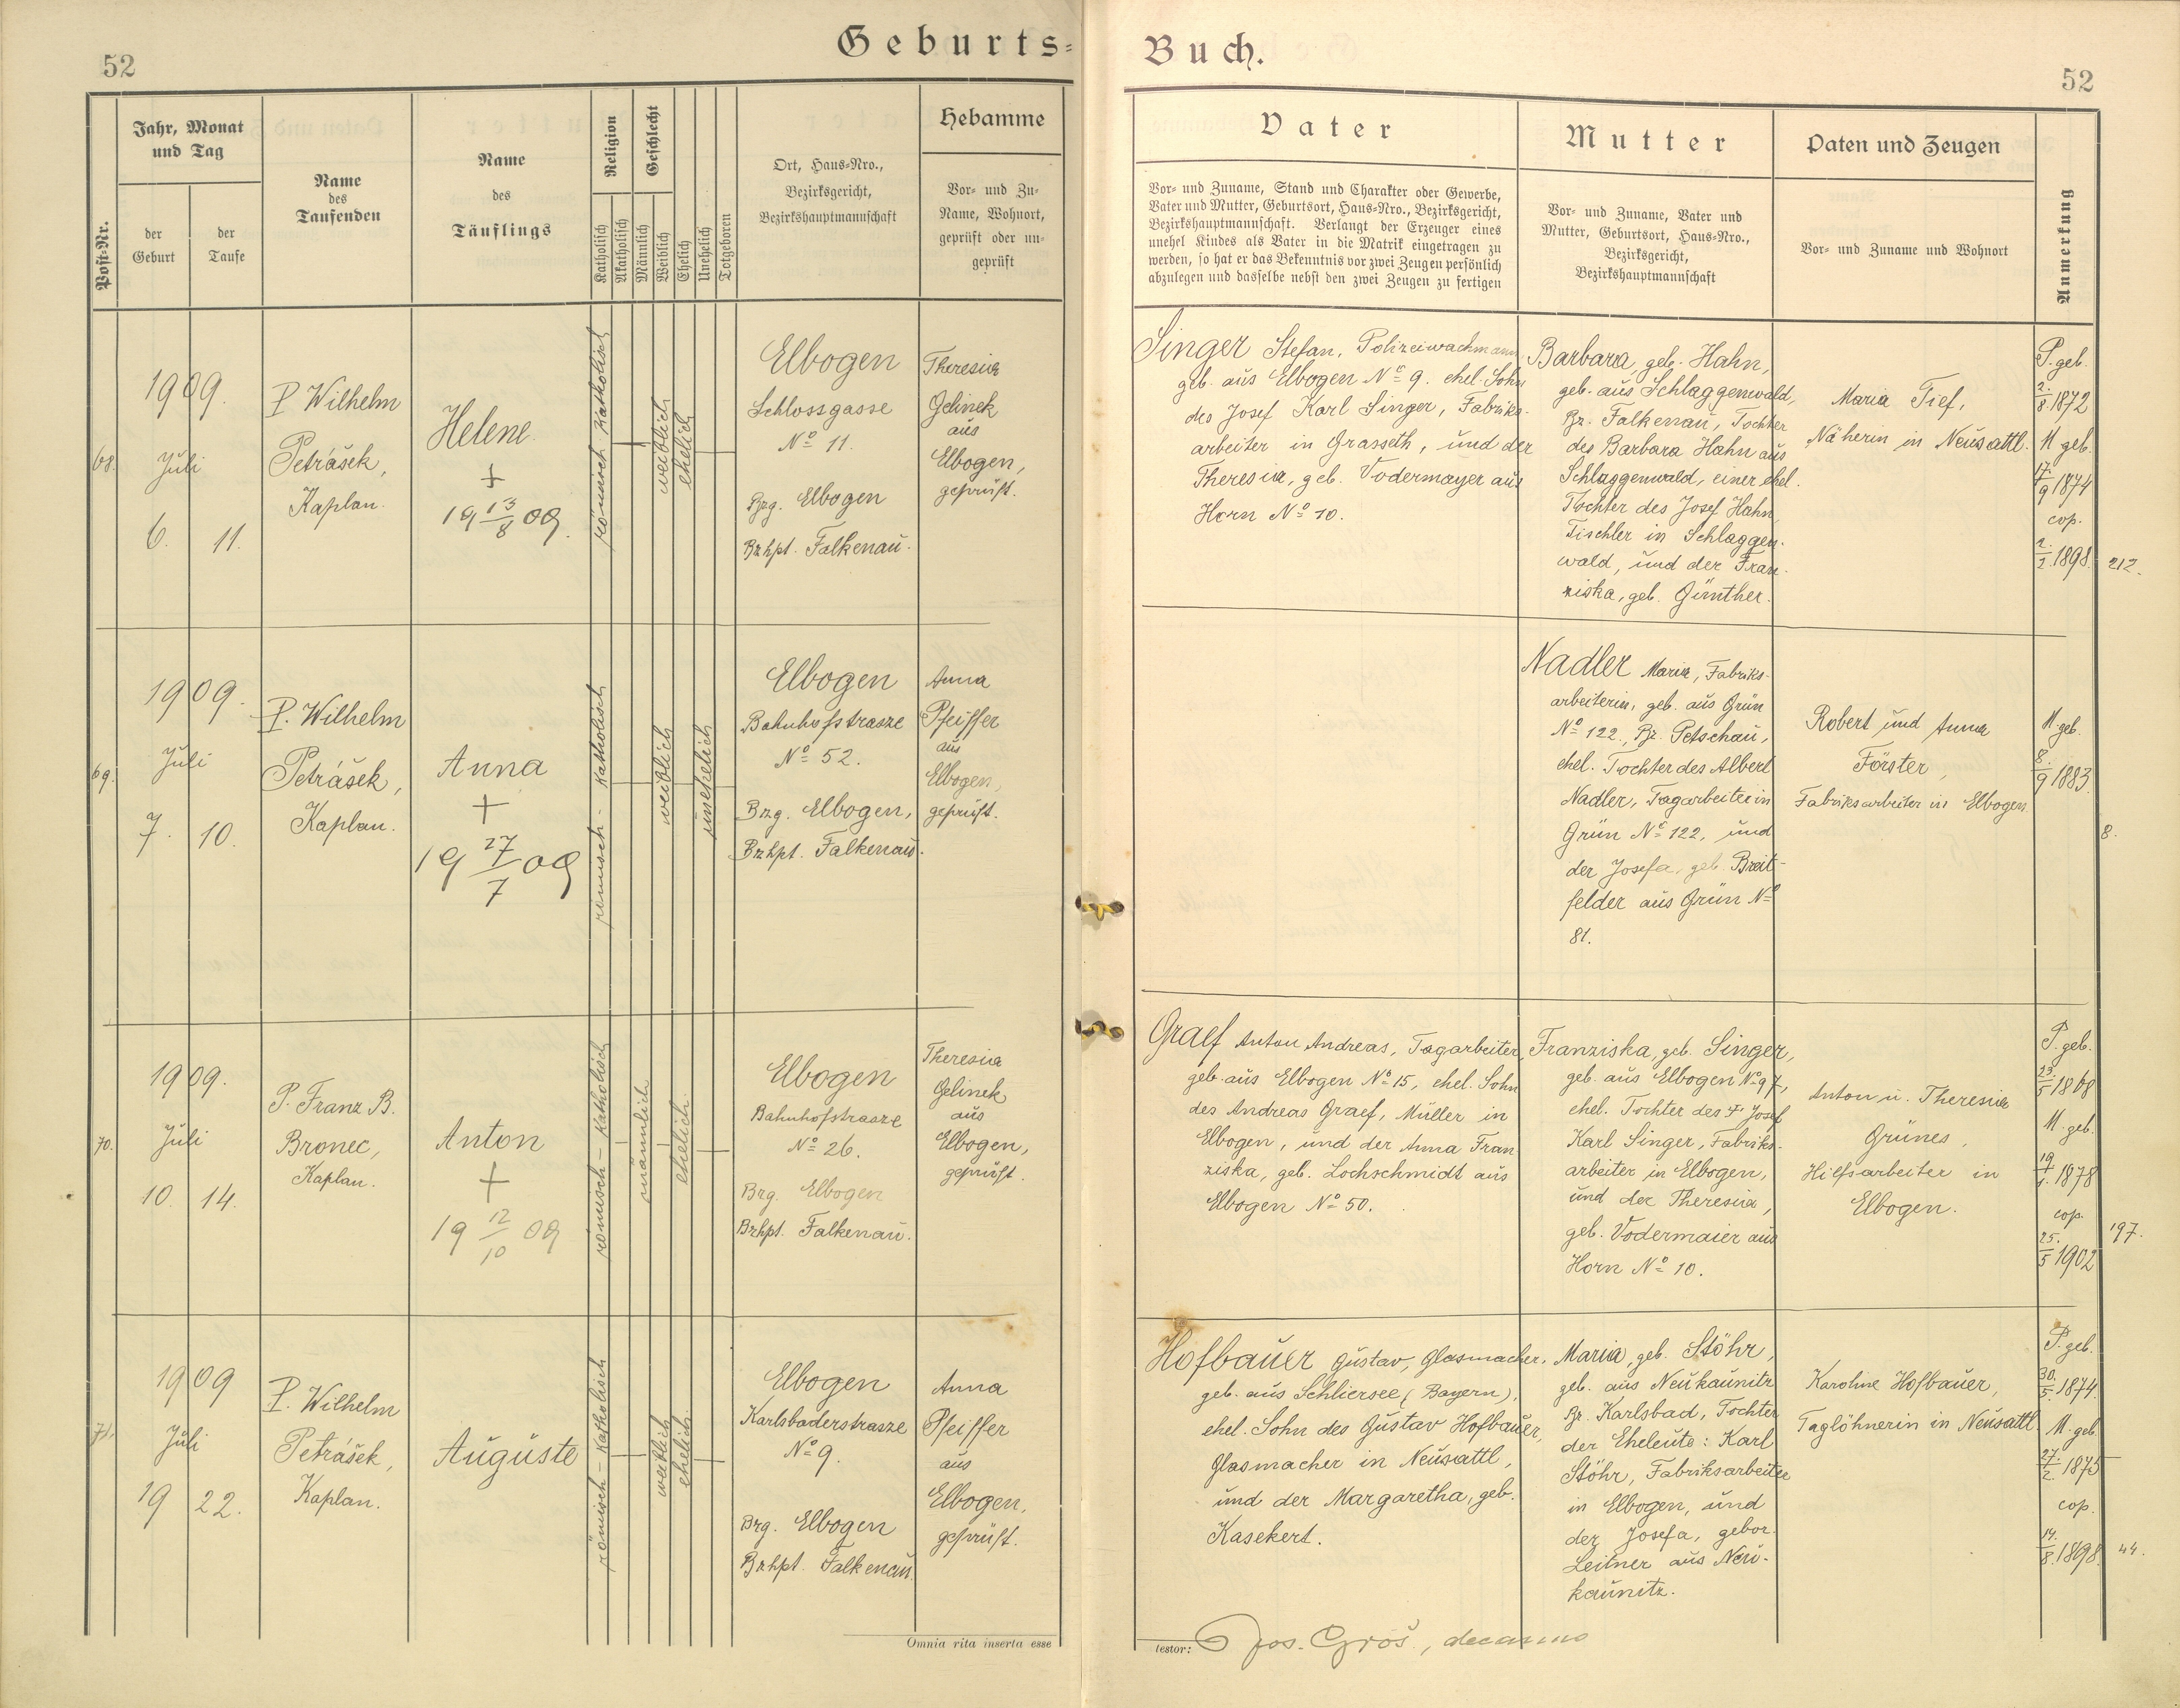 52
Geburts=
Buch.
52
Post-Nr.
Jahr, Monat
und Tag
der
Geburt
der
Taufe
Name
des
Taufenden
Name
des
Täuflings
Religion
Katholisch
Akatholisch
Geschlecht
Männlich
Weiblich
Ehelich
Unehelich
Totgeboren
Ort, Haus=Nro.,
Bezirksgericht,
Bezirkshauptmannschaft
Hebamme
Vor= und Zu=
Name, Wohnort,
geprüft oder un=
geprüft
Vater
Vor= und Zuname, Stand und Charakter oder Gewerbe,
Vater und Mutter, Geburtsort, Haus=Nro., Bezirksgericht,
Bezirkshauptmannschaft. Verlangt der Erzeuger eines
unehel Kindes als Vater in die Matrik eingetragen zu
werden, so hat er das Bekenntnis vor zwei Zeugen persönlich
abzulegen und dasselbe nebst den zwei Zeugen zu fertigen
Mutter
Vor= und Zuname, Vater und
Mutter, Geburtsort, Haus=Nro.,
Bezirksgericht,
Bezirkshauptmannschaft
Paten und Zeugen
Vor= und Zuname und Wohnort
Anmerkung
68.
1909.
Juli
6.
11.
P. Wilhelm
Petrášek,
Kaplan.
Helene.
+
19 13/8 09.
römisch katholisch
weiblich
ehelich
Elbogen
Schlossgasse
No 11.
Bzg. Elbogen
Bzhpt. Falkenau.
Theresia
Gelinek
aus
Elbogen,
geprüft.
Singer Stefan, Polizeiwachmann
geb. aus Elbogen No 9. ehel. Sohn
des Josef Karl Singer, Fabriks-
arbeiter in Grasseth, und der
Theresia, geb. Vodermayer aus
Horn No 10.
Barbara, geb. Hahn,
geb. aus Schlaggenwald,
Bz. Falkenau, Tochter
des Barbara Hahn aus
Schlaggenwald, einer ehel.
Tochter des Josef Hahn,
Tischler in Schlaggen-
wald, und der Fran-
ziska, geb. Günther.
Maria Tief,
Näherin in Neusattl.
P. geb.
2./8. 1872
M geb.
17./9 1874
cop.
2./2. 1898.
212.
69.
1909.
Juli
7.
10.
P. Wilhelm
Petrášek,
Kaplan.
Anna
+
19 27/7 09
römisch - katholisch
weiblich
unehelich
Elbogen
Bahnhofstrasze
No 52.
Bzg. Elbogen,
Bzhpt. Falkenau.
Anna
Pfeiffer
aus
Elbogen,
geprüft.
Nadler Maria, Fabriks-
arbeiterin, geb. aus Grün
No 122., Bz. Petschau,
ehel. Tochter des Albert
Nadler, Tagarbeiter in
Grün No 122, und
der Josefa, geb. Breit-
felder aus Grün No
81.
Robert und Anna
Förster,
Fabriksarbeiter in Elbogen.
M geb.
8./9 1883.
8.
70.
1909.
Juli
10.
14.
P. Franz B.
Bronec,
Kaplan.
Anton
+
19 12/10 09
römisch - katholisch
männlich
ehelich.
Elbogen
Bahnhofstrasze
No 26.
Bzg. Elbogen
Bzhpt. Falkenau.
Theresia
Gelinek
aus
Elbogen,
geprüft.
Graef Anton Andreas, Tagarbeiter,
geb. aus Elbogen No 15, ehel. Sohn
des Andreas Graef, Müller in
Elbogen, und der Anna Fran
ziska, geb. Lochschmidt aus
Elbogen No 50.
Franziska, geb. Singer,
geb. aus Elbogen No 97,
ehel. Tochter des Josef
Karl Singer, Fabriks-
arbeiter in Elbogen,
und der Theresia,
geb. Vodermaier aus
Horn No 10.
Anton u. Theresia
Grünes,
Hilfsarbeiter in
Elbogen.
P. geb.
23./5 1868
M. geb.
19./1. 1878
cop.
25./5 1902
197.
71.
1909
Juli
19
22.
P. Wilhelm
Petrášek,
Kaplan.
Auguste
römisch - katholisch
weiblich
ehelich.
Elbogen
Karlsbaderstrasze
No 9.
Bzg. Elbogen
Bzhpt. Falkenau.
Anna
Pfeiffer
aus
Elbogen,
geprüft.
Hofbauer Gustav, Glasmacher,
geb. aus Schliersee (Bayern),
ehel. Sohn des Gustav Hofbauer,
Glasmacher in Neusattl,
und der Margaretha, geb.
Kasekert.
Maria, geb. Stöhr,
geb. aus Neukaunitz
Bz. Karlsbad, Tochter
der Eheleute: Karl
Stöhr, Fabriksarbeiter
in Elbogen, und
der Josefa, gebor.
Leitner aus Neu-
kaunitz.
Karoline Hofbauer,
Taglöhnerin in Neusattl.
P. geb.
30./5. 1874.
M. geb.
27./2. 1875
cop.
14./8. 1898.
44.
Omnia rita inserta esse
testor:
Jos. Groš, decanus